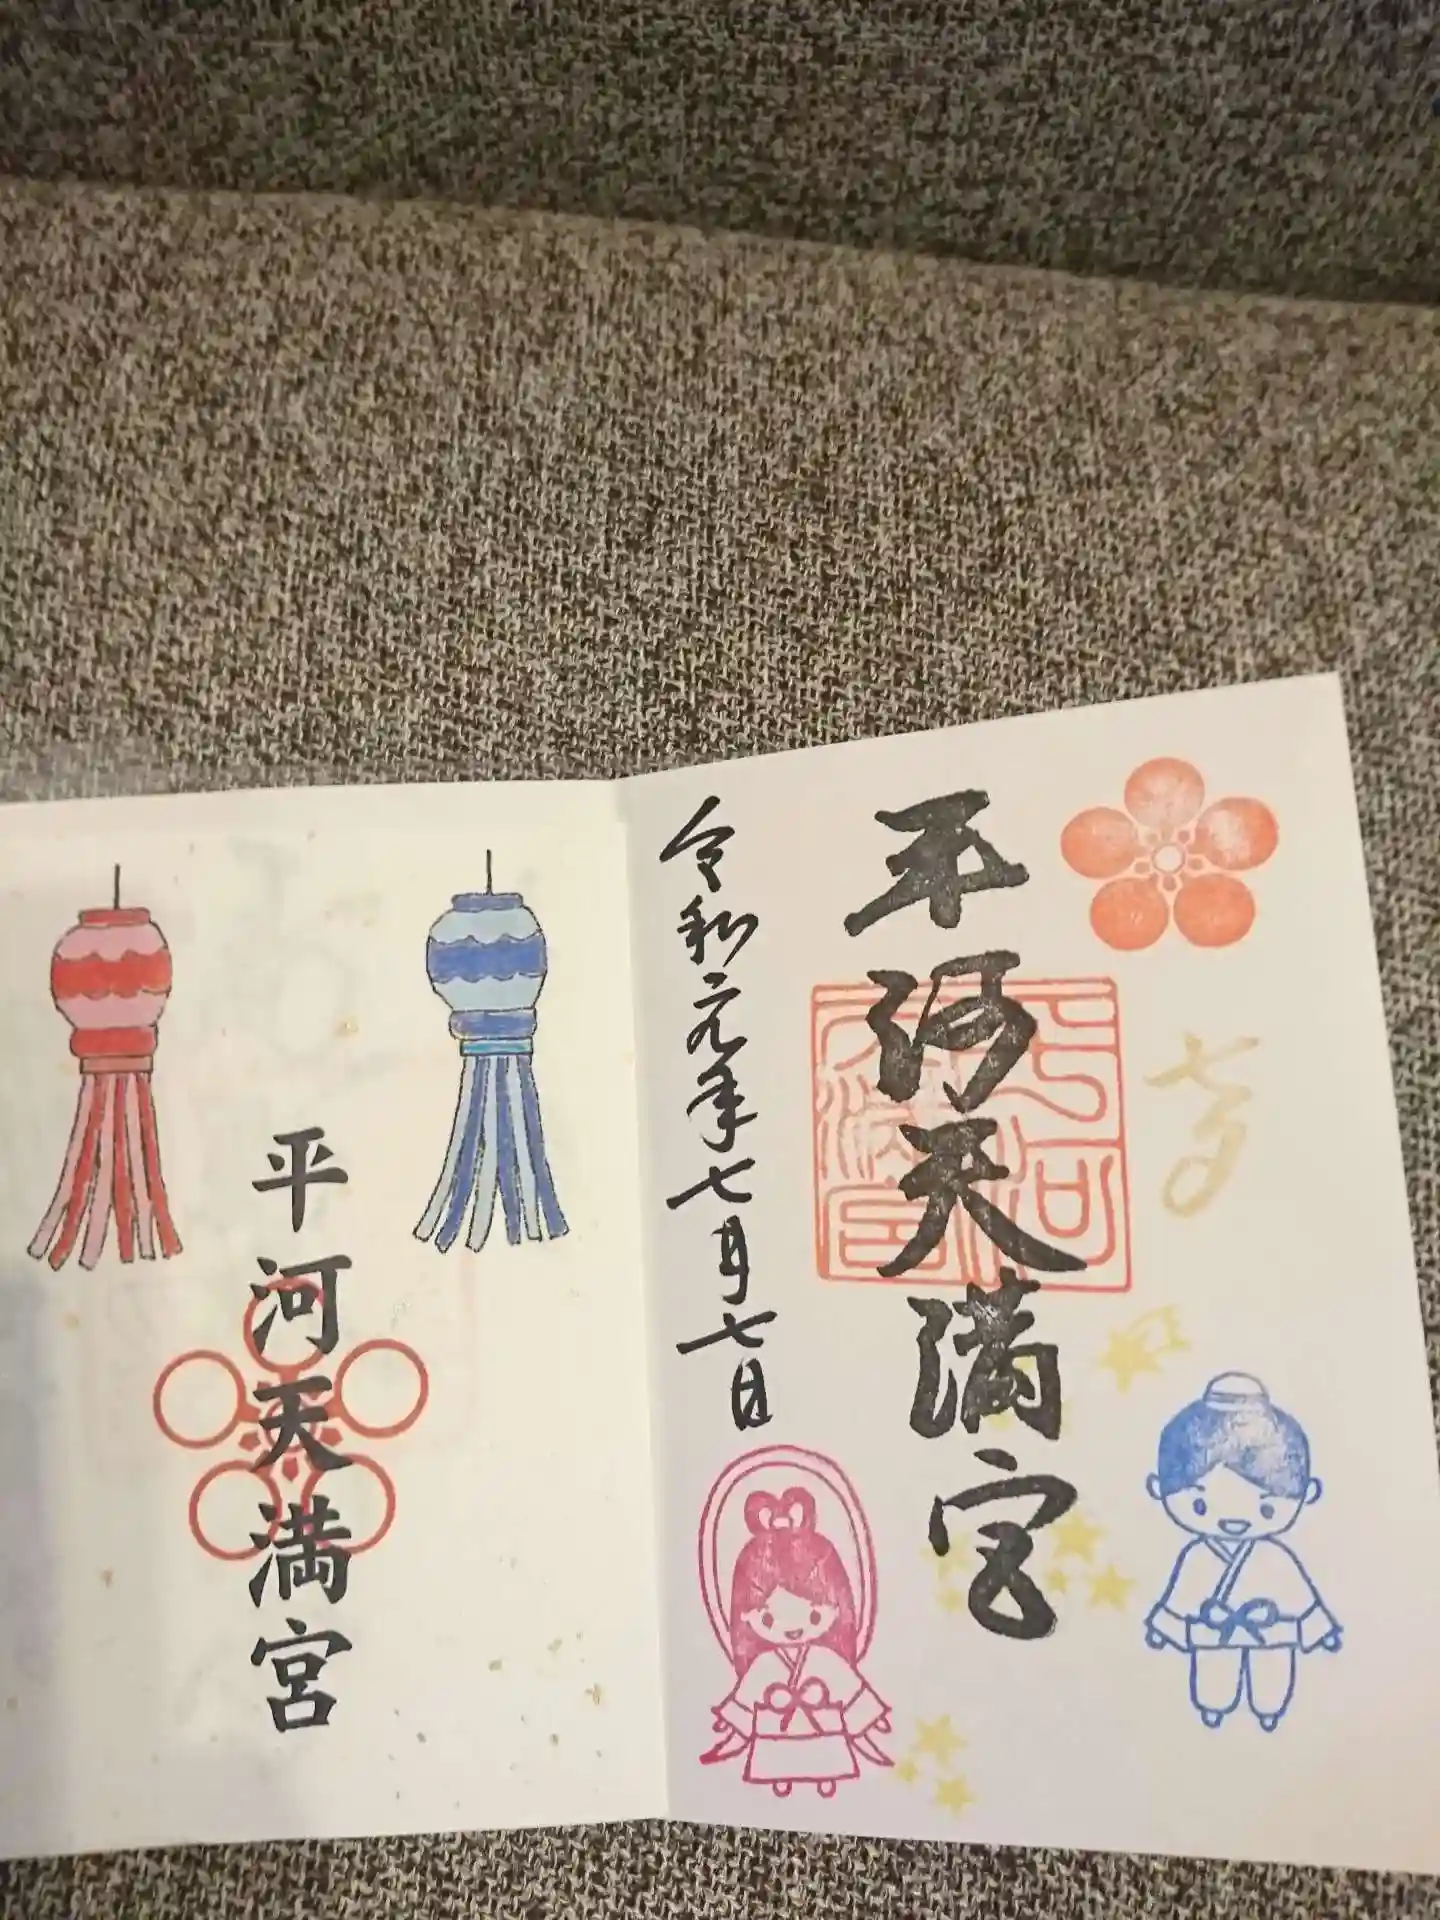 七夕
平河天満宮
平河天満宮
令和元年七月七日
平河天満宮